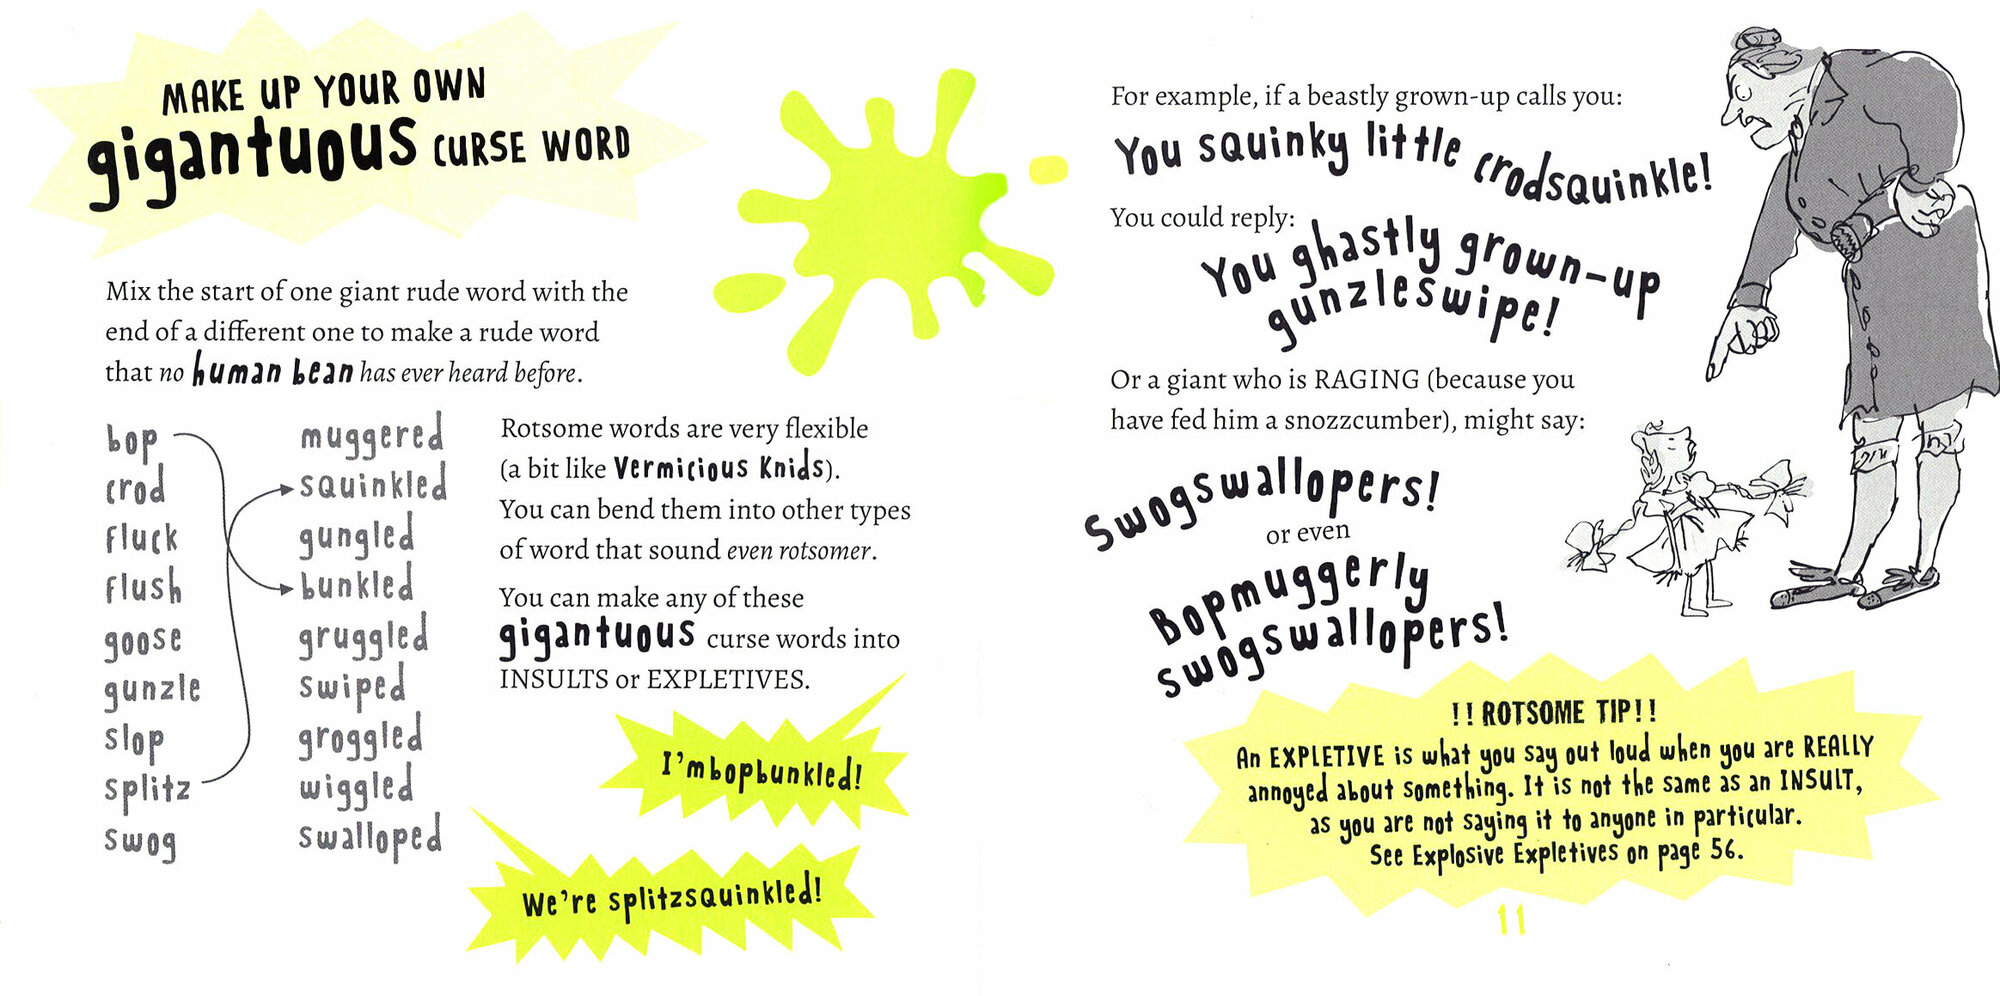 MAKE UP YOUR OWN
gigantuous CURSE WORD
Mix the start of one giant rude word with the
end of a different one to make a rude word
that no human bean has ever heard before.
bop
crod
fluck
flush
goose
gunzle
slop
splitz
swog
muggered
squinkled
gungled
bunkled
gruggled
swiped
groggled
wiggled
swalloped
Rotsome words are very flexible
(a bit like Vermicious Knids).
You can bend them into other types
of word that sound even rotsomer.
You can make any of these
gigantuous curse words into
INSULTS or EXPLETIVES.
I'm bopbunkled!
We're splitzsquinkled!
For example, if a beastly grown-up calls you:
You squinky little crodsquinkle!
You could reply:
You ghastly grown-up
gunzleswipe!
Or a giant who is RAGING (because you
have fed him a snozzcumber), might say:
Swogswallopers!
or even
Bopmuggerly
swogswallopers!
!! ROTSOME TIP!!
An EXPLETIVE is what you say out loud when you are REALLY
annoyed about something. It is not the same as an INSULT,
as you are not saying it to anyone in particular.
See Explosive Expletives on page 56.
11